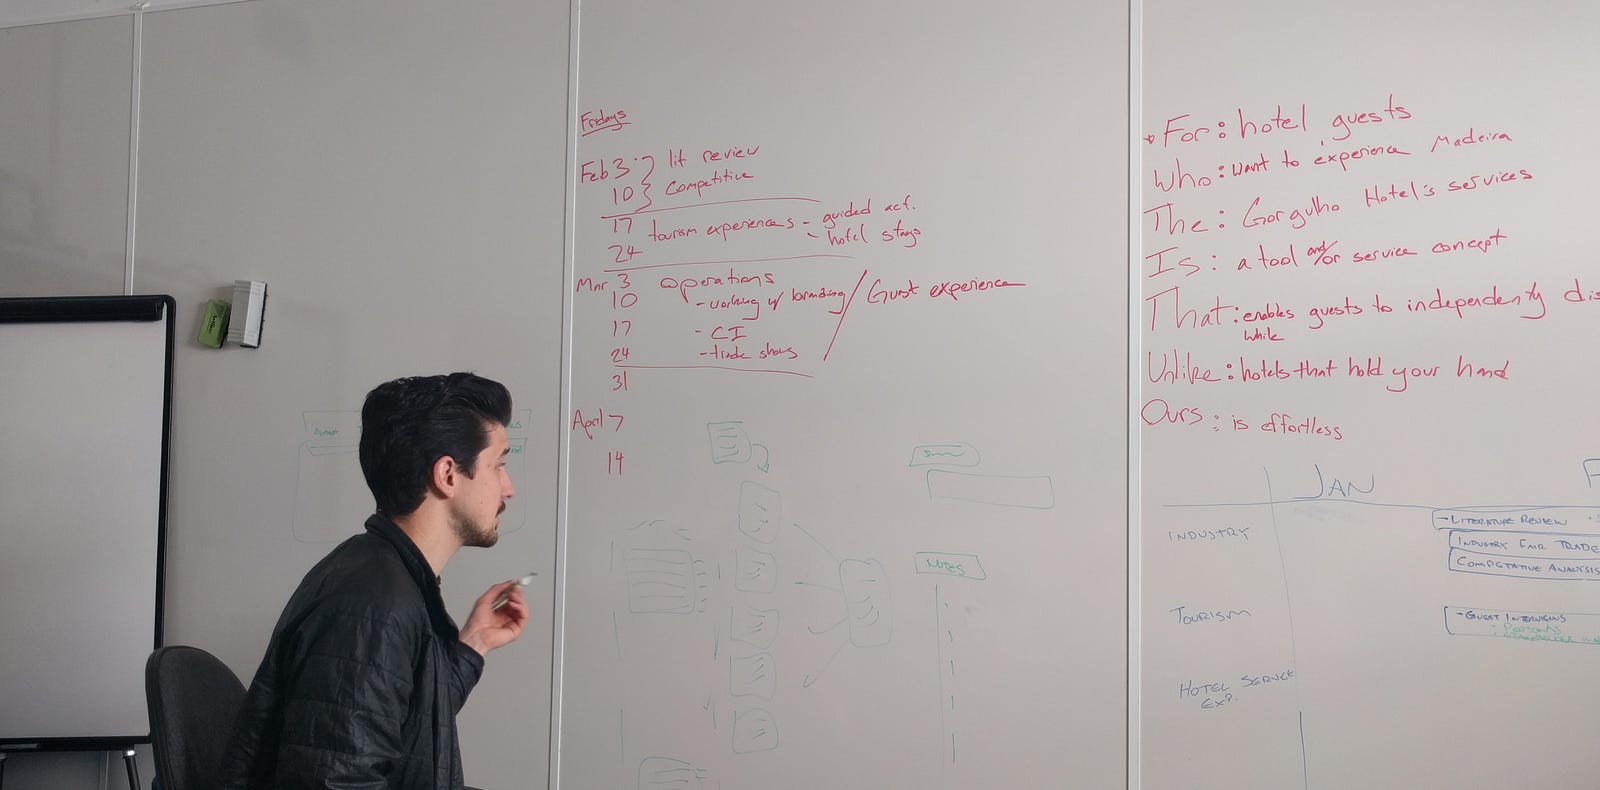 Fridays
Feb 3 } lit review
10 } Competitive
17 tourism experiences - guided act.
24 - hotel stays
Mar 3 operations
10 - working w/ branding / Guest experience
17 - CI
24 - trade shows
31
April 7
14
* For: hotel guests
Who: want to experience Madeira
The: Gorgulho Hotel's services
Is: a tool and/or service concept
That: enables guests to independently dis
while
Unlike: hotels that hold your hand
Ours: is effortless
JAN F
INDUSTRY
- LITERATURE REVIEW
INDUSTRY FAIR TRADE
COMPETATIVE ANALYSIS
TOURISM
- GUEST INTERVIEWS
: PERSONAS
HOTEL SERVICE
EXP.
NOTES